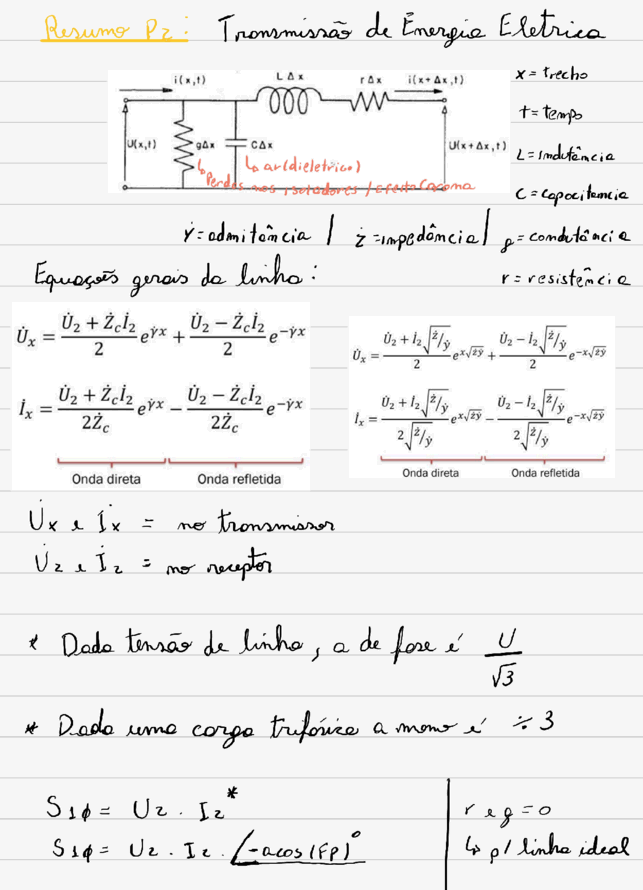 Resumo P2: Transmissão de Energia Eletrica
i(x,t) LΔx rΔx i(x+Δx,t)
x = trecho
t = tempo
U(x,t) gΔx CΔx U(x+Δx,t)
L = indutância
↳ ar(dieletrico)
↳ Perdas nos isoladores / efeito Corona
C = capacitancia
Ẏ = admitância / ż = impedância / g = condutância
r = resistência
Equações gerais da linha:
U̇x = (U̇2 + Żcİ2)/2 e^γ̇x + (U̇2 − Żcİ2)/2 e^−γ̇x
İx = (U̇2 + Żcİ2)/2Żc e^γ̇x − (U̇2 − Żcİ2)/2Żc e^−γ̇x
Onda direta Onda refletida
U̇x = (U̇2 + İ2√(ż/ẏ))/2 e^x√(żẏ) + (U̇2 − İ2√(ż/ẏ))/2 e^−x√(żẏ)
İx = (U̇2 + İ2√(ż/ẏ))/(2√(ż/ẏ)) e^x√(żẏ) − (U̇2 − İ2√(ż/ẏ))/(2√(ż/ẏ)) e^−x√(żẏ)
Onda direta Onda refletida
U̇x e İx = no transmissor
U̇2 e İ2 = no receptor
* Dada tensão de linha, a de fase é U/√3
* Dada uma carga trifásica a mono é ÷ 3
S1φ = U2 . I2*
S1φ = U2 . I2 . ∠-acos(FP)°
r e g = 0
↳ p/ linha ideal